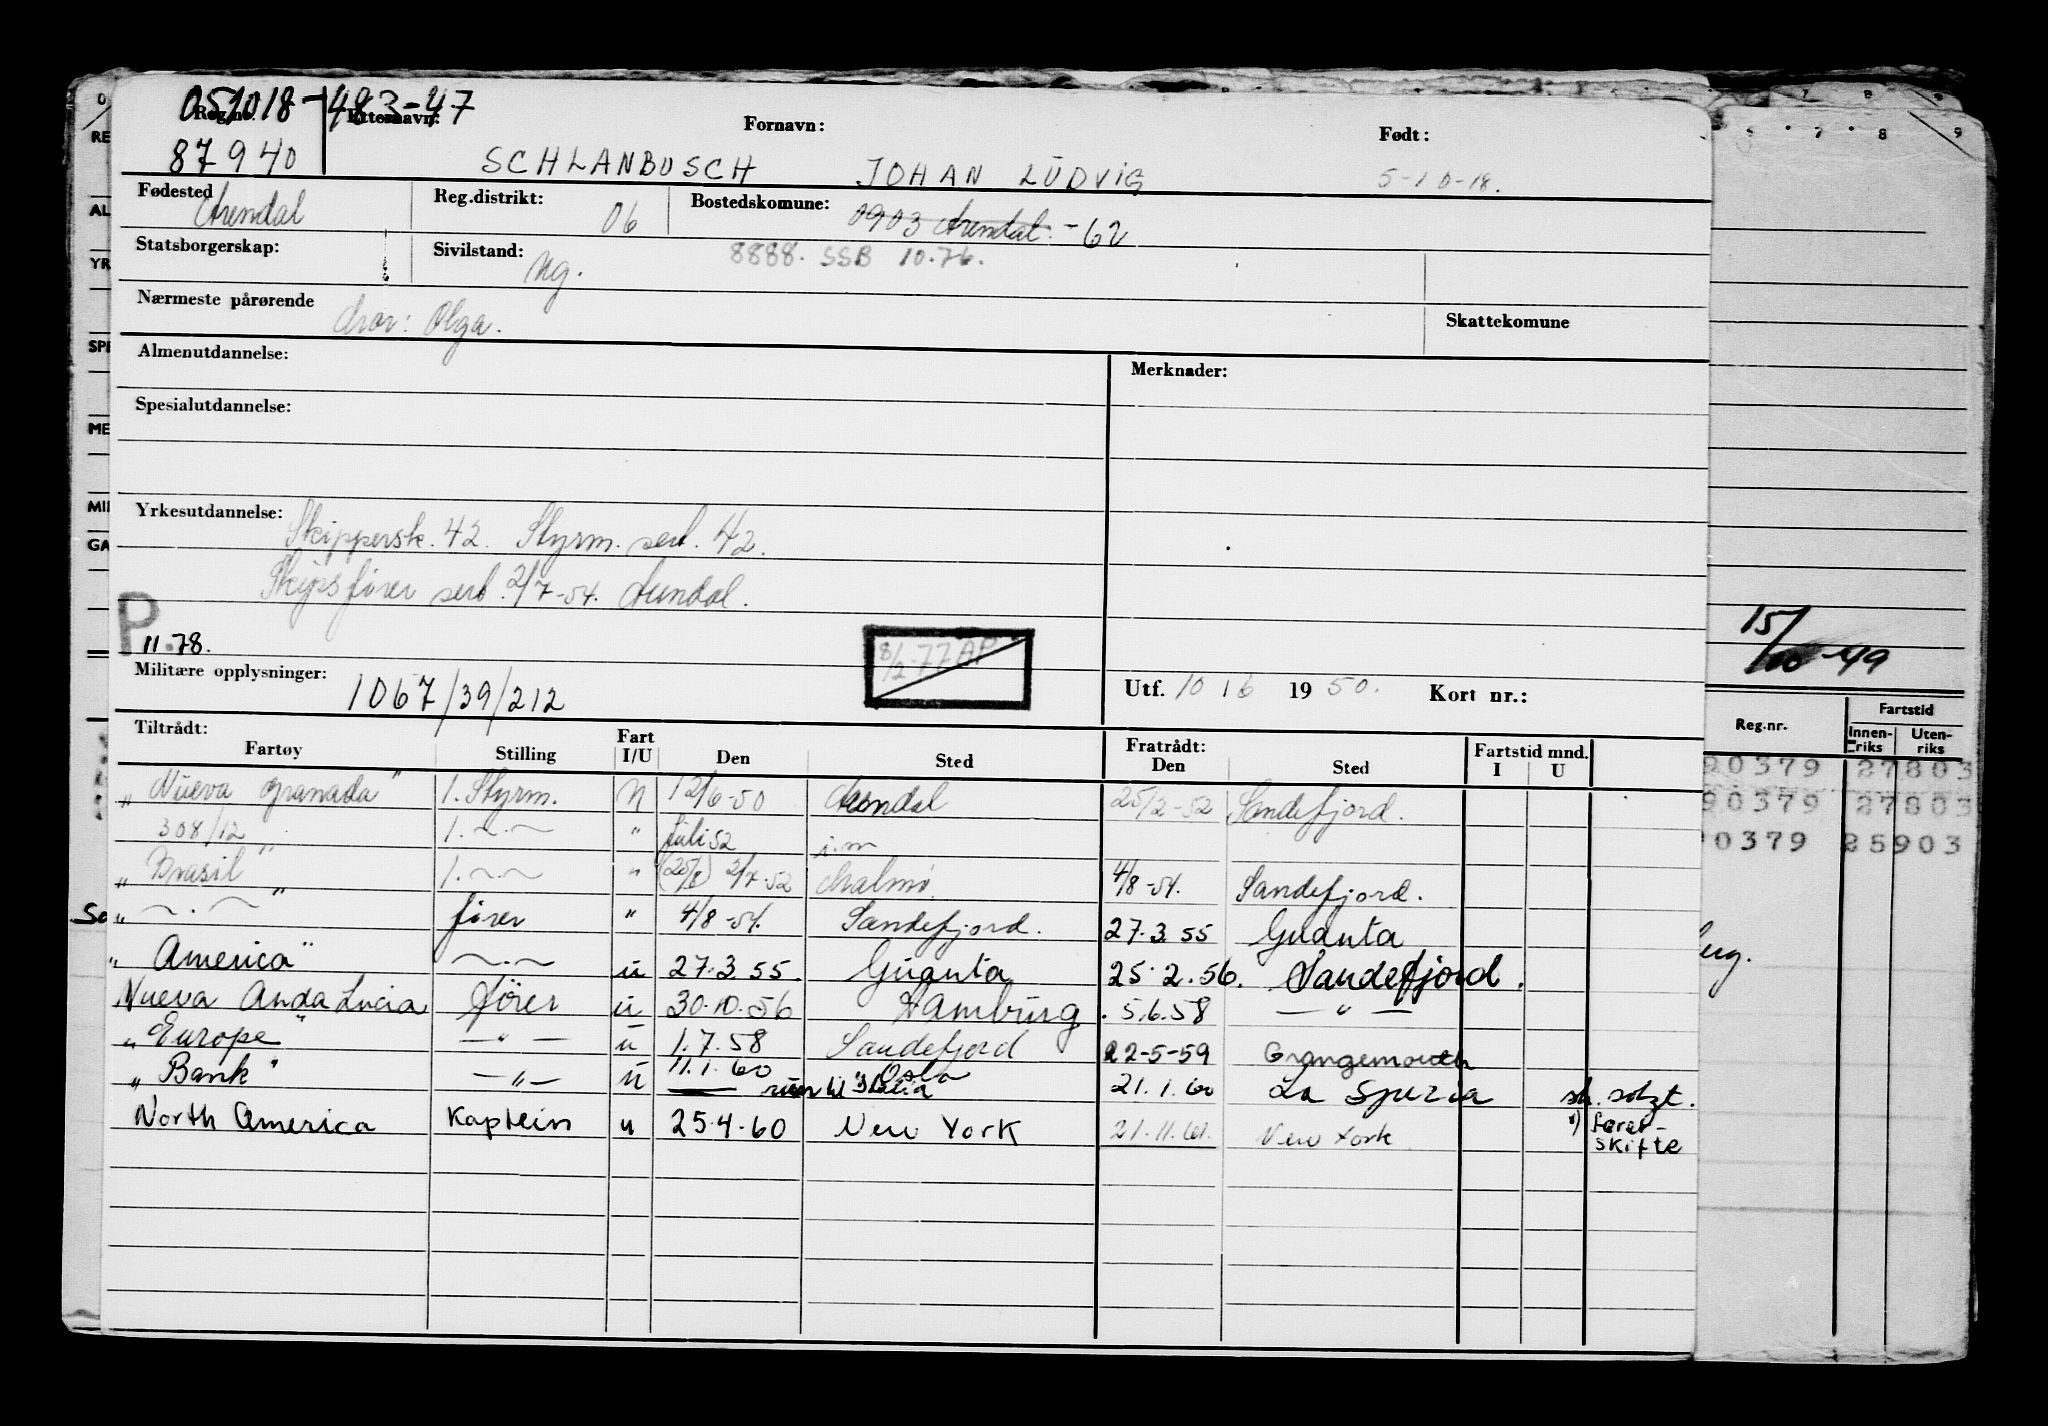 051018-483-47
Reg.nr. Etternavn: Fornavn: Født:
87940 SCHLANBUSCH JOHAN LUDVIG 5-10-18.
Fødested Arendal Reg.distrikt: 06 Bostedskomune: 0903 Arendal. -62
Statsborgerskap: Sivilstand: ug. 8888. SSB 10.76.
Nærmeste pårørende mor: Olga. Skattekomune
Almenutdannelse: Merknader:
Spesialutdannelse:
Yrkesutdannelse: Skippersk. 42. Styrm. sert. 42.
Skipsfører sert. 2/7-54. Arendal.
P 11.78.
8/2-77 AP
Militære opplysninger: 1067/39/212 Utf. 10 16 1950. Kort nr.:
Tiltrådt: Fratrådt: Fartstid mnd.
Fartøy Stilling Fart I/U Den Sted Den Sted I U
"Nueva Granada" 1. Styrm. N 12/6-50 Arendal 25/2-52 Sandefjord.
308/12 1. ~.~ " juli 52
"Brasil" 1. ~.~ " (25/8) 2/7-52 Malmø 4/8-54. Sandefjord.
" ~.~ " fører " 4/8-54. Sandefjord. 27.3.55 Guanta
"America" ~.~ u 27.3.55. Guanta 25.2.56. Sandefjord.
Nueva Anda Lucia fører u 30.10.56 Hamburg. 5.6.58 — " —
"Europe" — " — u 1.7.58 Sandefjord 22-5-59 Grangemouth
"Bank" — " — u 11.1.60 Oslo 21.1.60 La Spezia
North America Kaptein u 25.4.60 New York 21.11.61. New York
skifte
15/10-49
Reg.nr. Fartstid
Innenriks Utenriks
90379 27803
90379 27803
90379 25903